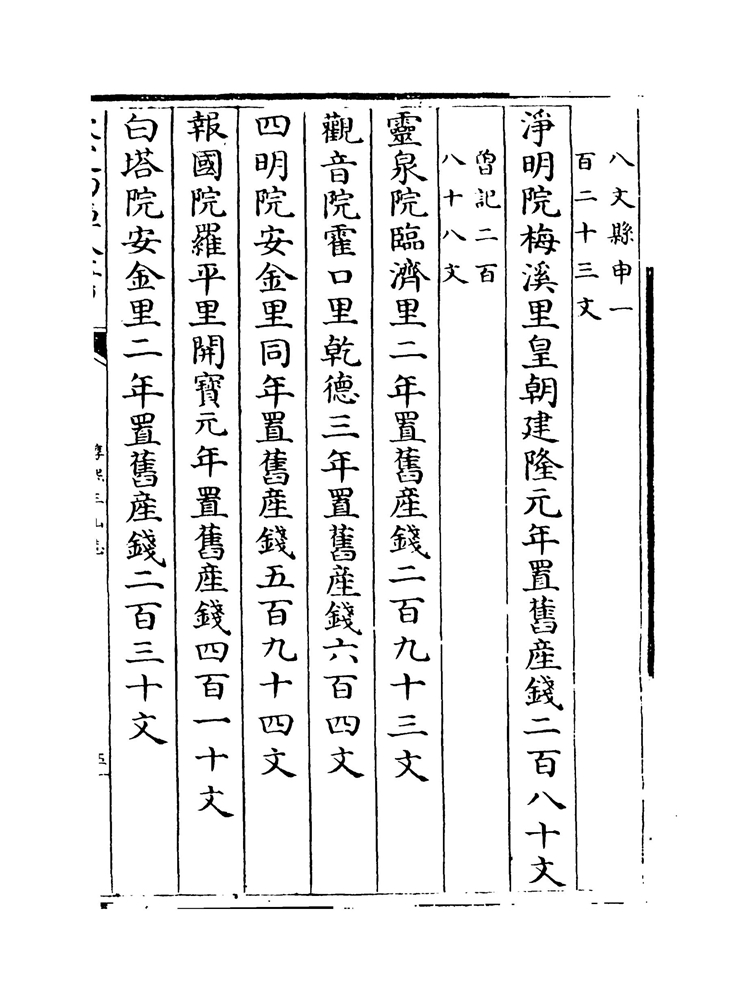 八文縣申一
百二十三文
淨明院梅溪里皇朝建隆元年置舊産錢二百八十文
曾記二百
八十八文
靈泉院臨濟里二年置舊産錢二百九十三文
觀音院霍口里乾德三年置舊産錢六百四文
四明院安金里同年置舊産錢五百九十四文
報國院羅平里開寶元年置舊産錢四百一十文
白塔院安金里二年置舊産錢二百三十文
淳熙三山志